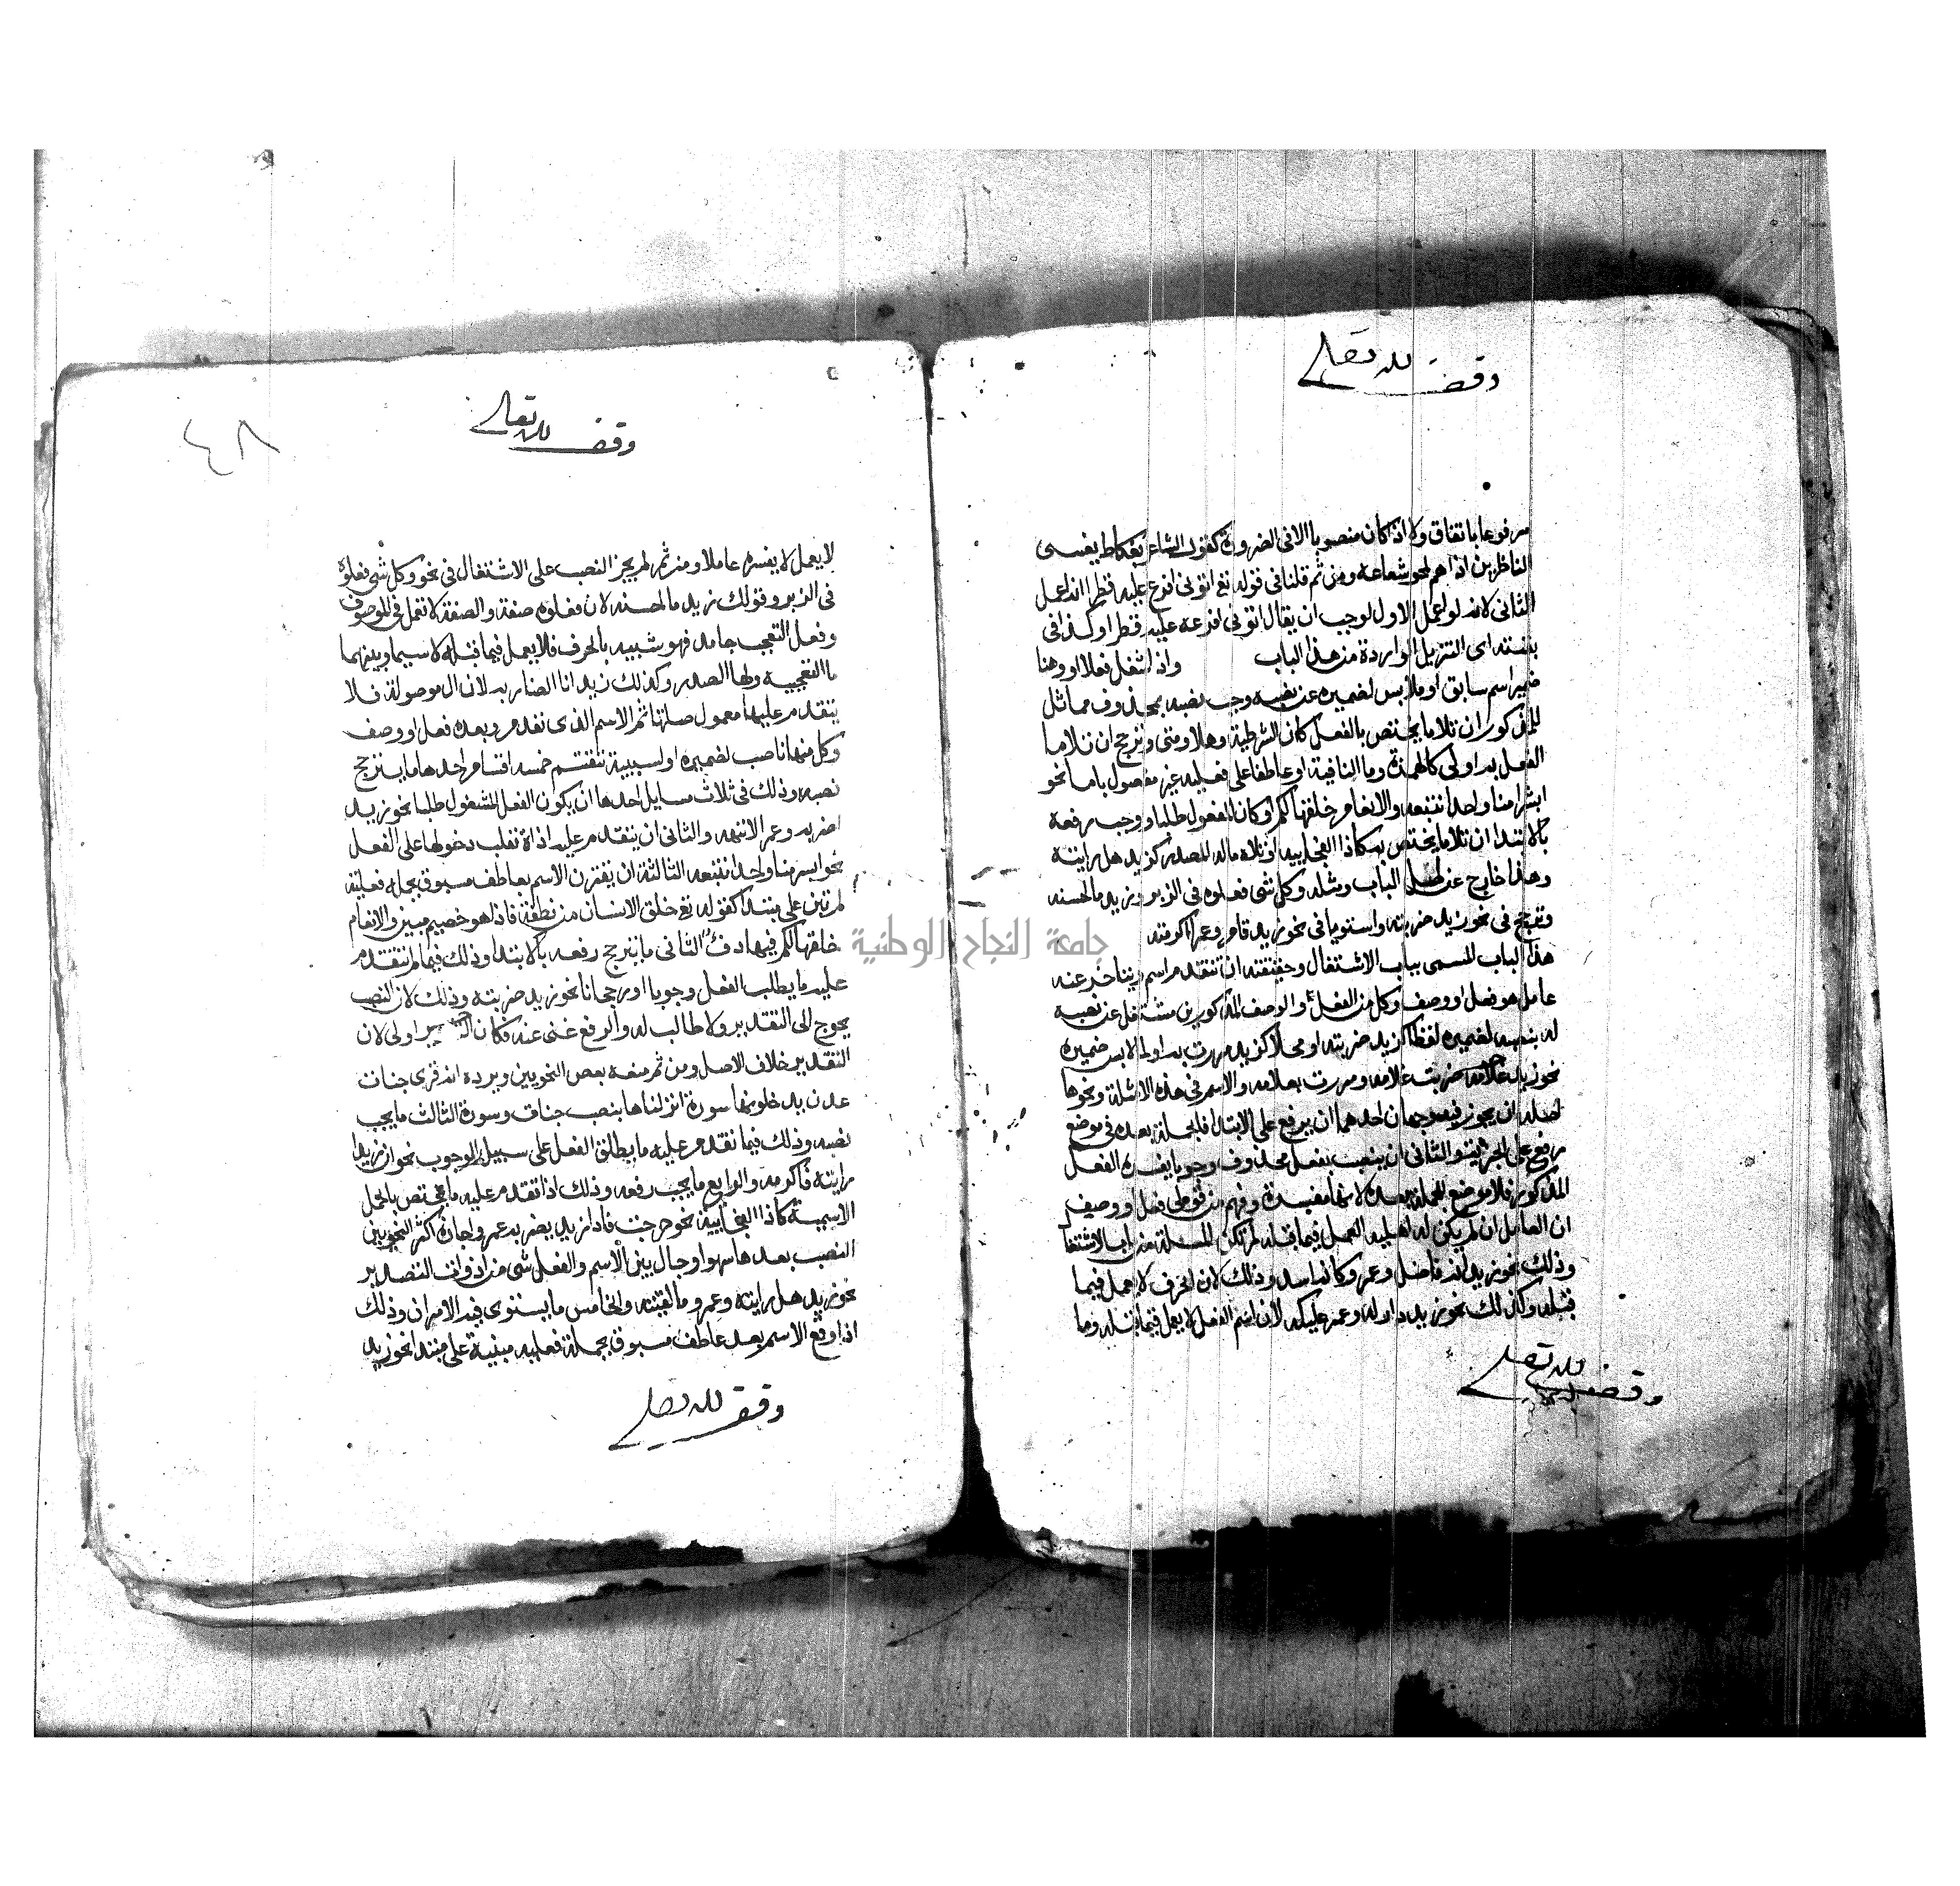 وقف لله تعالى
مرفوعا باتفاق ولا اذا كان منصوبا الا فى الضرورة كقول الشاعر بعكاظ يعشى
الناظرين اذا هم لمحوا شعاعه ومن ثم قلنا فى قوله تع اتونى افرغ عليه قطرا انه اعمل
الثانى لانه لو اعمل الاول لوجب ان يقال اتونى افرغه عليه قطرا وكذا فى
بقيته اى التنزيل الواردة من هذا الباب واذا شغل فعلا او وصفا
ضمير اسم سابق او ملابس لضميره عن نصبه وجب نصبه بمحذوف مماثل
للمذكور ان تلا ما يختص بالفعل كان الشرطية وهلا ومتى وترجح ان تلا ما
الفعل به اولى كالهمزة وما النافية او عاطفا على فعليه غير مفصول باما نحو
ابشرا منا واحدا نتبعه والانعام خلقها لكم او كان المشغول طلبا ووجب رفعه
بالابتدا ان تلا ما يختص به كاذا الفجاييه او تلاه ما له الصدر كزيد هل رايته
وهذا خارج عن اصل الباب ومثله وكل شى فعلوه فى الزبر وزيد ما احسنه
وترجح فى نحو زيد ضربته واستويا فى نحو زيد قام وعمرا اكرمته
هذا الباب المسمى بباب الاشتغال وحقيقته ان يتقدم اسم ويتاخر عنه
عامل هو فعل او وصف وكل من الفعل والوصف المذكورين مشتغل عن نصبه
له بنصبه لضميره لفظا كزيد ضربته او محلا كزيد مررت به او لما لابس ضميره
نحو زيد ضربت غلامه ومررت بغلامه والاسم فى هذه الامثلة ونحوها
اصله ان يجوز فيه وجهان احدهما ان يرفع على الابتدا فالجملة بعده فى موضع
رفع على الخبرية والثانى ان ينصب بفعل محذوف وجوبا يفسره الفعل
المذكور فلا موضع للجملة بعده لانها مفسرة وفهم من قولى فعل او وصف
ان العامل ان لم يكن له اهلية العمل فيما قبله لم تكن المسئلة من باب الاشتغال
وذلك نحو زيد انه فاضل وعمرو كانه اسد وذلك لان الحرف لا يعمل فيما
قبله وكذلك نحو زيد دراكه وعمرو عليكه لان اسم الفعل لا يعمل فيما قبله وما
وقف لله تعالى
٤٨
وقف لله تعالى
لا يعمل لا يفسر عاملا ومن ثم لم يجز النصب على الاشتغال فى نحو وكل شى فعلوه
فى الزبر وقولك زيد ما احسنه لان فعلوه صفة والصفة لا تعمل فى الموصوف
وفعل التعجب جامد فهو شبيه بالحرف فلا يعمل فيما قبله لا سيما وبينهما
ما التعجبيه ولها الصدر وكذلك زيد انا الضاربه لان ال موصولة فلا
يتقدم عليها معمول صلتها ثم الاسم الذى تقدم وبعده فعل او وصف
وكل منهما ناصب لضميره او لسببيه تنقسم خمسه اقسام احدها ما يترجح
نصبه وذلك فى ثلاث مسايل احدها ان يكون الفعل المشغول طلبا نحو زيدا
اضربه وعمرا لا تهنه والثانى ان يتقدم عليه اداة تغلب دخولها على الفعل
نحو ابشرا منا واحدا نتبعه الثالثة ان يقترن الاسم بعاطف مسبوق بجمله فعلية
لم تبن على مبتدا كقوله تع خلق الانسان من نطفة فاذا هو خصيم مبين والانعام
خلقها لكم فيها دفء الثانى ما يترجح رفعه بالابتدا وذلك فيما لم يتقدم
عليه ما يطلب الفعل وجوبا او رجحانا نحو زيد ضربته وذلك لان النصب
يحوج الى التقدير ولا طالب له والرفع غنى عنه فكان اولى لان
التقدير خلاف الاصل ومن ثم منعه بعض النحويين ويرده انه قرى جنات
عدن يدخلونها سورة انزلناها بنصب جنات وسورة الثالث ما يجب
نصبه وذلك فيما تقدم عليه ما يطلق الفعل على سبيل الوجوب نحو ان زيدا
رايته فاكرمه والرابع ما يجب رفعه وذلك اذا تقدم عليه ما يختص بالجمل
الاسمية كاذا الفجاييه نحو خرجت فاذا زيد يضربه عمرو واجاز اكثر النحويين
النصب بعدها سهوا وحال بين الاسم والفعل شى من ادوات التصدير
نحو زيد هل رايته وعمرو ما لقيته والخامس ما يستوى فيه الامران وذلك
اذا وقع الاسم بعد عاطف مسبوق بجملة فعليه مبنية على مبتدا نحو زيد
وقف لله تعالى
جامعة النجاح الوطنية